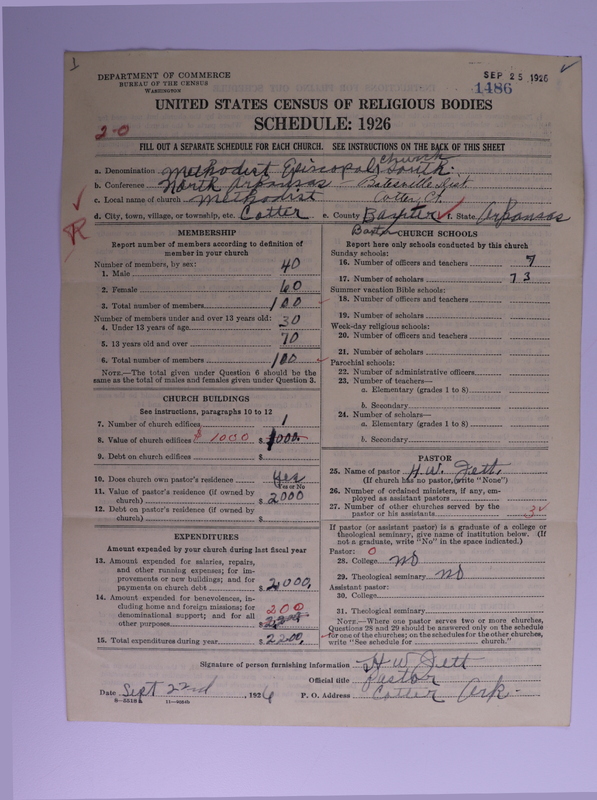 1
DEPARTMENT OF COMMERCE
BUREAU OF THE CENSUS
WASHINGTON
SEP 25 1926
1486
UNITED STATES CENSUS OF RELIGIOUS BODIES
SCHEDULE: 1926
2-0
FILL OUT A SEPARATE SCHEDULE FOR EACH CHURCH. SEE INSTRUCTIONS ON THE BACK OF THIS SHEET
a. Denomination Methodist Episcopal Church South.
b. Conference North Arkansas - Batesville Dist.
c. Local name of church Methodist Cotter Ct.
d. City, town, village, or township, etc. Cotter e. County Baxter f. State Arkansas
R
Baxter
MEMBERSHIP
Report number of members according to definition of member in your church
Number of members, by sex:
1. Male 40
2. Female 60
3. Total number of members 100
Number of members under and over 13 years old:
4. Under 13 years of age 30
5. 13 years old and over 70
6. Total number of members 100
NOTE.—The total given under Question 6 should be the same as the total of males and females given under Question 3.
CHURCH BUILDINGS
See instructions, paragraphs 10 to 12
7. Number of church edifices 1
8. Value of church edifices $ 1000 $ 1000.
9. Debt on church edifices $
10. Does church own pastor's residence Yes
Yes or No
11. Value of pastor's residence (if owned by church) $ 2000
12. Debt on pastor's residence (if owned by church) $
EXPENDITURES
Amount expended by your church during last fiscal year
13. Amount expended for salaries, repairs, and other running expenses; for improvements or new buildings; and for payments on church debt $ 2000.
14. Amount expended for benevolences, including home and foreign missions; for denominational support; and for all other purposes $ 200
15. Total expenditures during year $ 2200.
CHURCH SCHOOLS
Report here only schools conducted by this church
Sunday schools:
16. Number of officers and teachers 7
17. Number of scholars 73
Summer vacation Bible schools:
18. Number of officers and teachers
19. Number of scholars
Week-day religious schools:
20. Number of officers and teachers
21. Number of scholars
Parochial schools:
22. Number of administrative officers
23. Number of teachers—
a. Elementary (grades 1 to 8)
b. Secondary
24. Number of scholars—
a. Elementary (grades 1 to 8)
b. Secondary
PASTOR
25. Name of pastor H. W. Jett.
(If church has no pastor, write "None")
26. Number of ordained ministers, if any, employed as assistant pastors
27. Number of other churches served by the pastor or his assistants 3
If pastor (or assistant pastor) is a graduate of a college or theological seminary, give name of institution below. (If not a graduate, write "No" in the space indicated.)
Pastor: 0
28. College no
29. Theological seminary no
Assistant pastor:
30. College
31. Theological seminary
NOTE.—Where one pastor serves two or more churches, Questions 28 and 29 should be answered only on the schedule for one of the churches; on the schedules for the other churches, write "See schedule for church."
Signature of person furnishing information H W Jett
Official title Pastor
Date Sept 22nd, 1926 P. O. Address Cotter Ark.